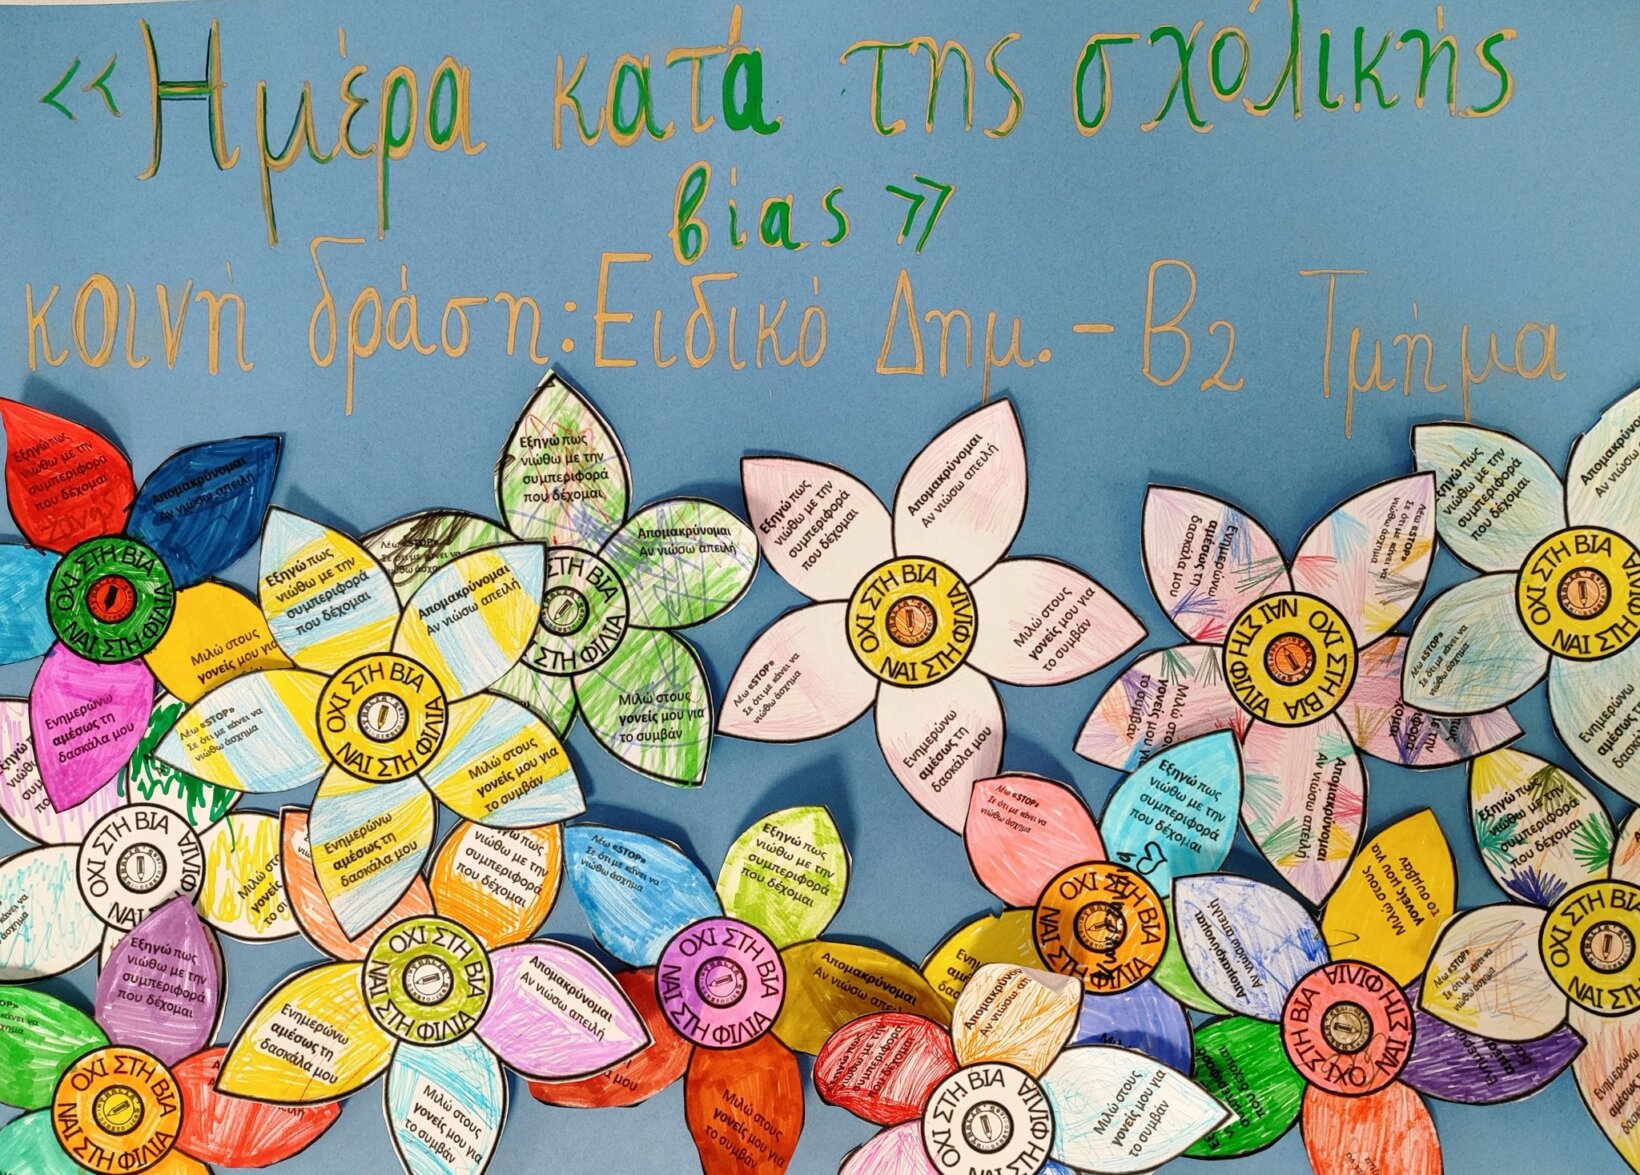 «Ημέρα κατά της σχολικής
βίας»
κοινή δράση: Ειδικό Δημ. - Β2 Τμήμα
Εξηγώ πως
νιώθω με την
συμπεριφορά
που δέχομαι
Απομακρύνομαι
Αν νιώσω απειλή
Μιλώ στους
γονείς μου για
Ενημερώνω
αμέσως τη
δασκάλα μου
ΟΧΙ ΣΤΗ ΒΙΑ
ΝΑΙ ΣΤΗ ΦΙΛΙΑ
Εξηγώ πως
νιώθω με την
συμπεριφορά
που δέχομαι
Απομακρύνομαι
Αν νιώσω απειλή
Μιλώ στους
γονείς μου για
το συμβάν
Ενημερώνω
αμέσως τη
δασκάλα μου
Λέω «STOP»
Σε ότι με κάνει να
νιώθω άσχημα
ΟΧΙ ΣΤΗ ΒΙΑ
ΝΑΙ ΣΤΗ ΦΙΛΙΑ
Εξηγώ πως
νιώθω με την
συμπεριφορά
που δέχομαι
Απομακρύνομαι
Αν νιώσω απειλή
Μιλώ στους
γονείς μου για
το συμβάν
Λέω «STOP»
Σε ότι με κάνει να
ΣΤΗ ΒΙΑ
ΣΤΗ ΦΙΛΙΑ
Εξηγώ πως
νιώθω με την
συμπεριφορά
που δέχομαι
Απομακρύνομαι
Αν νιώσω απειλή
Μιλώ στους
γονείς μου για
το συμβάν
Ενημερώνω
αμέσως τη
δασκάλα μου
Λέω «STOP»
Σε ότι με κάνει να
νιώθω άσχημα
ΟΧΙ ΣΤΗ ΒΙΑ
ΝΑΙ ΣΤΗ ΦΙΛΙΑ
Ενημερώνω
αμέσως τη
δασκάλα μου
Λέω «STOP»
Σε ότι με κάνει να
νιώθω άσχημα
Μιλώ στους
γονείς μου για
το συμβάν
Απομακρύνομαι
Αν νιώσω απειλή
ΟΧΙ ΣΤΗ ΒΙΑ
ΝΑΙ ΣΤΗ ΦΙΛΙΑ
Εξηγώ πως
νιώθω με την
συμπεριφορά
που δέχομαι
Λέω «STOP»
Σε ότι με κάνει να
νιώθω άσχημα
Ενημερώνω
αμέσως τη
ΟΧΙ ΣΤΗ ΒΙΑ
ΝΑΙ ΣΤΗ
ΟΧΙ ΣΤΗ ΒΙΑ
ΝΑΙ ΣΤΗ ΦΙΛΙΑ
Εξηγώ πως
νιώθω με την
συμπεριφορά
που δέχομαι
ΟΧΙ ΣΤΗ ΒΙΑ
ΝΑΙ ΣΤΗ ΦΙΛΙΑ
νιώθω με την
συμπεριφορά
που δέχομαι
Απομακρύνομαι
Αν νιώσω απειλή
Ενημερώνω
αμέσως τη
δασκάλα μου
Μιλώ στους
γονείς μου για
το συμβάν
ΟΧΙ ΣΤΗ ΒΙΑ
ΝΑΙ ΣΤΗ ΦΙΛΙΑ
Λέω «STOP»
Σε ότι με κάνει να
νιώθω άσχημα
Εξηγώ πως
νιώθω με την
συμπεριφορά
που δέχομαι
Απομακρύνομαι
Μιλώ στους
γονείς μου για
το συμβάν
ΟΧΙ ΣΤΗ ΒΙΑ
ΝΑΙ ΣΤΗ ΦΙΛΙΑ
Λέω «STOP»
Σε ότι με κάνει να
νιώθω άσχημα
Εξηγώ πως
νιώθω με την
συμπεριφορά
που δέχομαι
ΟΧΙ ΣΤΗ ΒΙΑ
ΝΑΙ ΣΤΗ ΦΙΛΙΑ
Απομακρύνομαι
Μιλώ στους
γονείς μου για
το συμβάν
ΟΧΙ ΣΤΗ ΒΙΑ
ΦΙΛΙΑ
Απομακρύνομαι
Αν νιώσω απειλή
Μιλώ στους
γονείς μου για
το συμβάν
ΟΧΙ ΣΤΗ ΒΙΑ
ΝΑΙ ΣΤΗ ΦΙΛΙΑ
Εξηγώ πως
νιώθω με την
συμπεριφορά
που δέχομαι
Λέω «STOP»
Σε ότι με κάνει να
νιώθω άσχημα
ΟΧΙ ΣΤΗ ΒΙΑ
ΝΑΙ ΣΤΗ